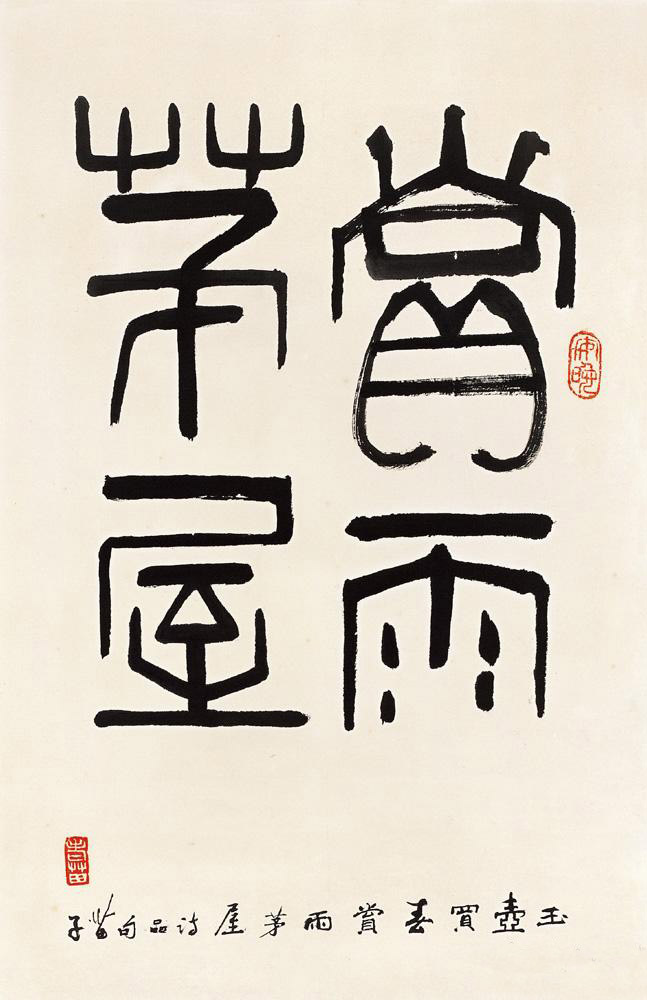 賞雨
茅屋
玉壺買春賞雨茅屋詩品句黃苗子